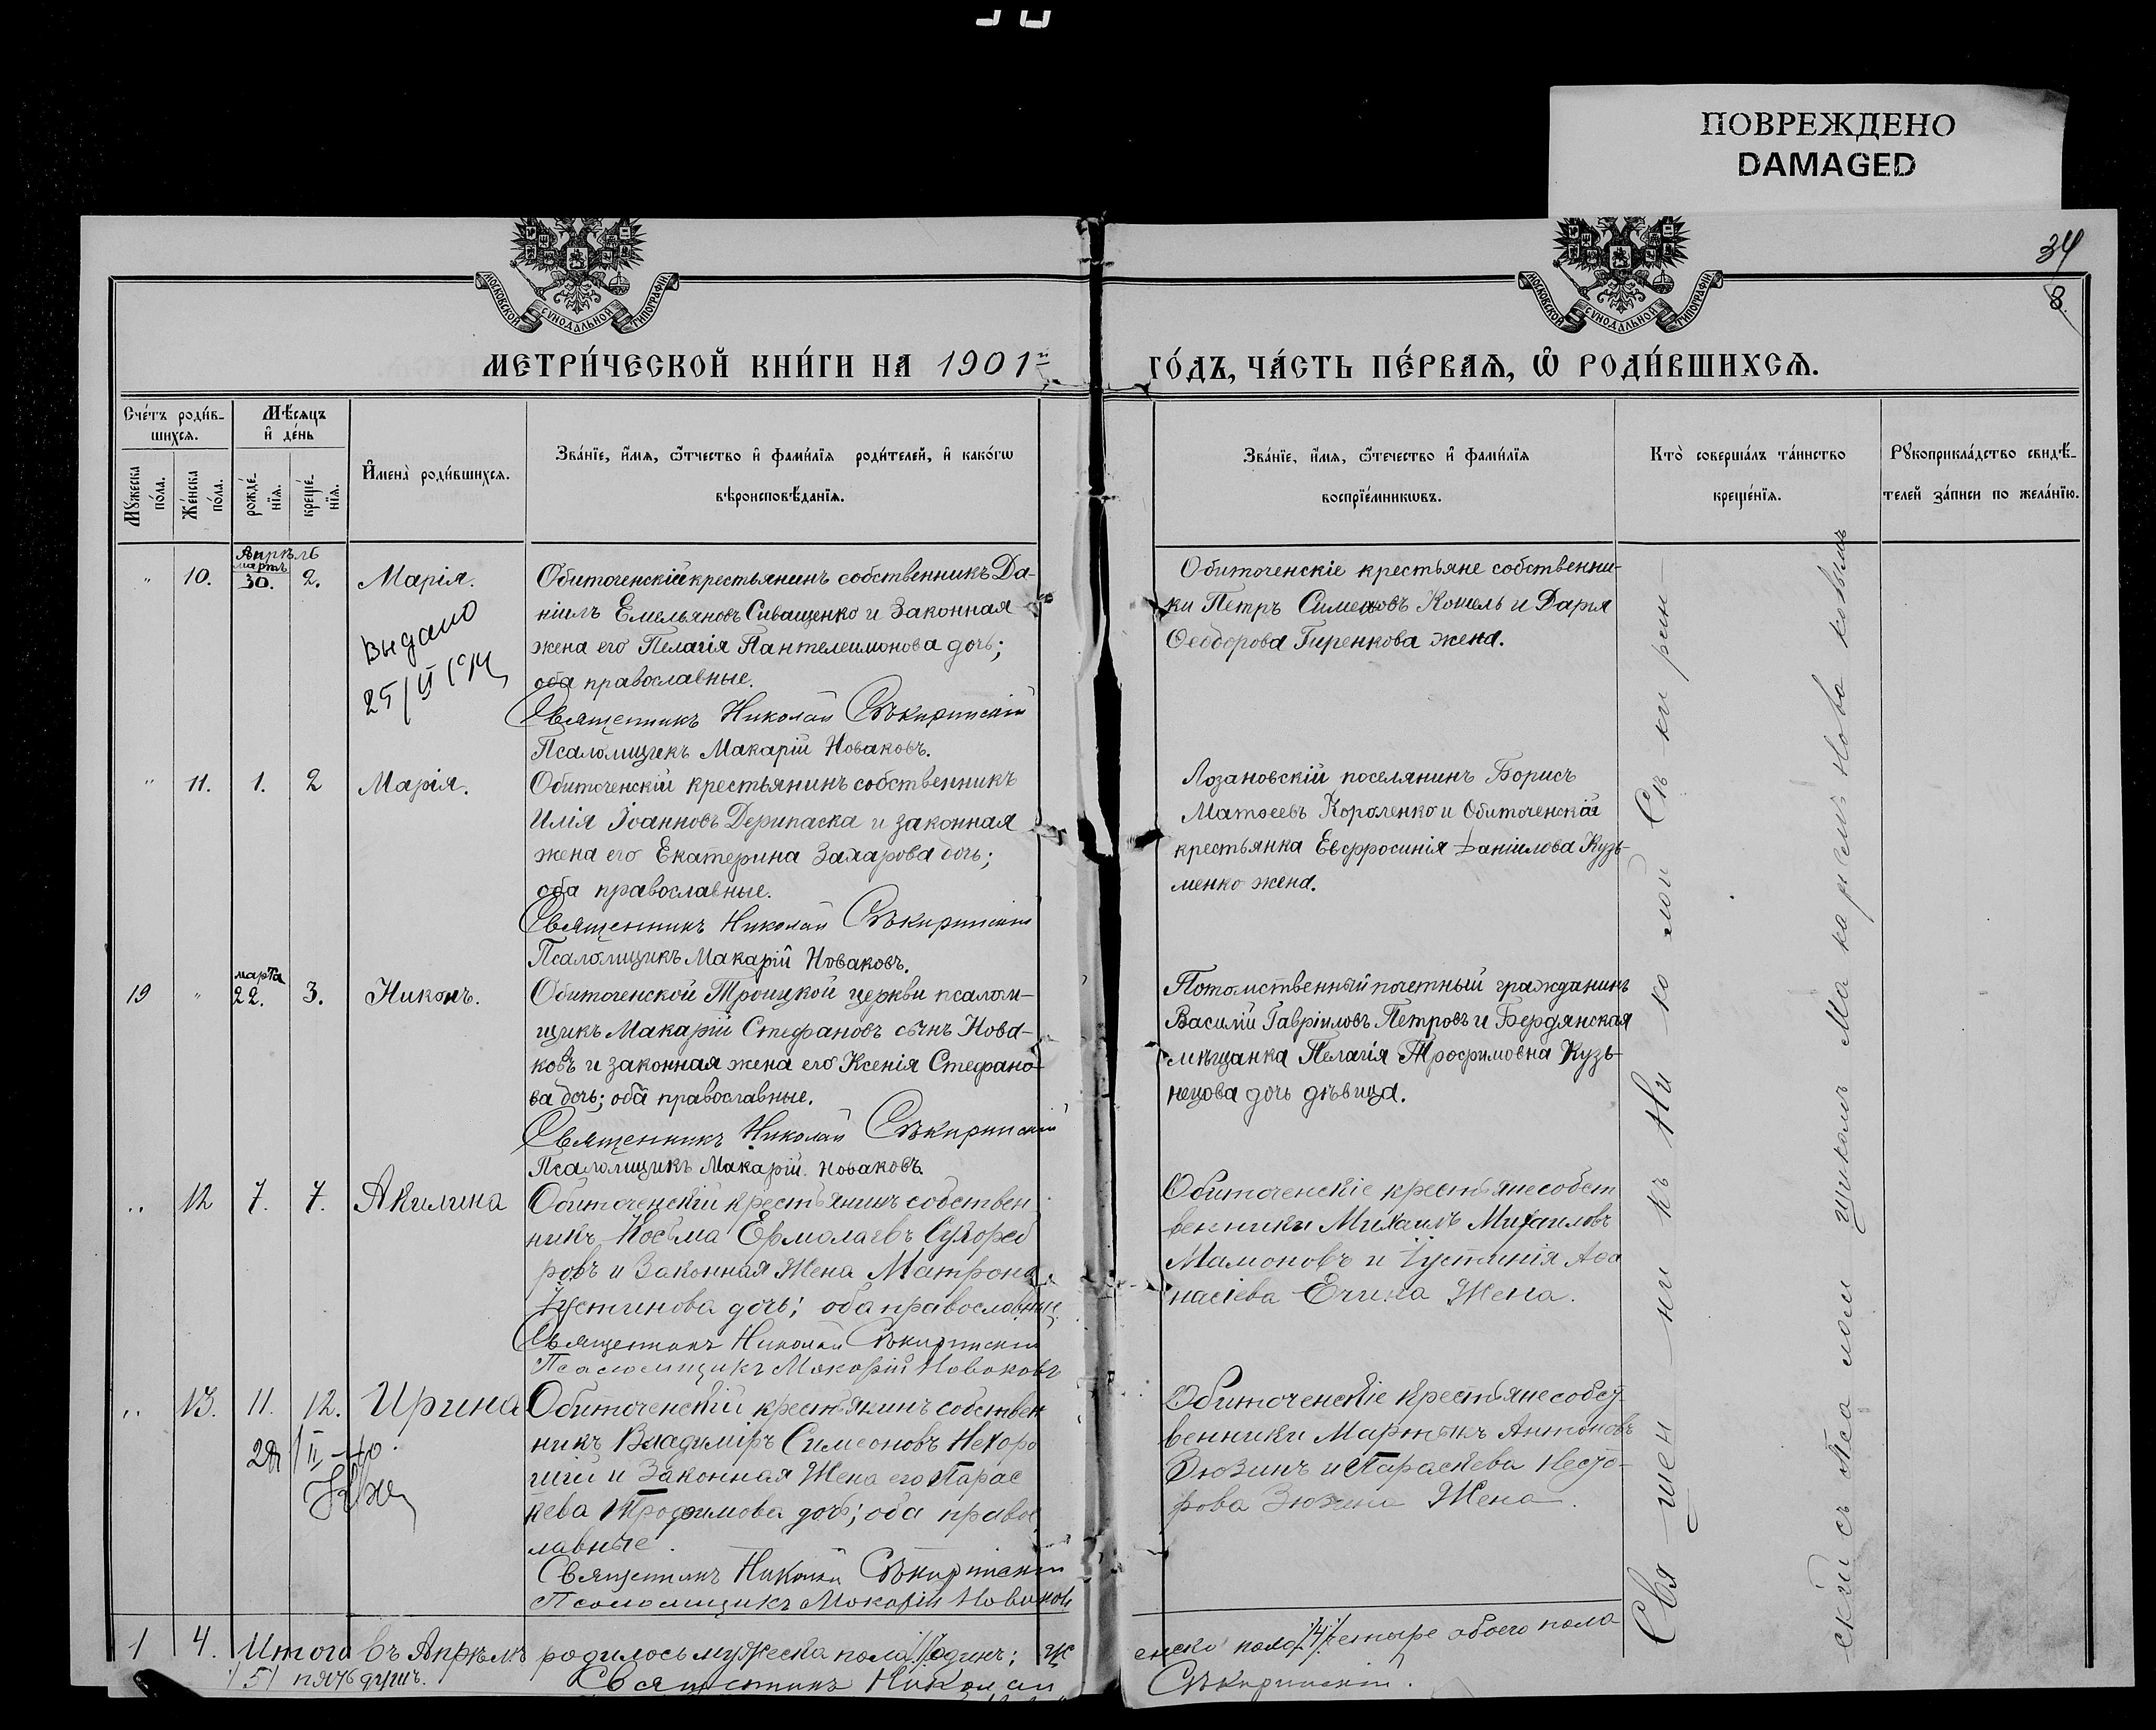 ПОВРЕЖДЕНО
DAMAGED
34
8.
МОСКОВСКОЙ СѴНОДАЛЬНОЙ ТИПОГРАФІИ
МОСКОВСКОЙ СѴНОДАЛЬНОЙ ТИПОГРАФІИ
МЕТРИ́ЧЕСКОЙ КНИ́ГИ НА 1901й ГО́ДЪ, ЧА́СТЬ ПЕ́РВАѦ, Ѽ РОДИ́ВШИХСѦ.
Сче́тъ роди́в-
шихсѧ.
Мꙋ́жеска по́ла.
Же́нска по́ла.
Мѣ́сѧцъ
и҆ де́нь
рожде́-
нїѧ.
креще́-
нїѧ.
И҆мена̀ роди́вшихсѧ.
Зва́нїе, и҆́мѧ, ѻ҆́тчество и҆ фами́лїѧ роди́телей, и҆ како́гѡ
вѣроисповѣ́данїѧ.
Зва́нїе, и҆́мѧ, ѻ҆́течество и҆ фами́лїѧ
воспрїе́мникѡвъ.
Кто̀ соверша́лъ та́инство
креще́нїѧ.
Рꙋкоприкла́дство свидѣ́-
телей за́писи по жела́нїю.
Апрѣль
мартъ
" 10. 30. 2. Марія.
Обиточенскій крестьянинъ собственникъ Да-
ніилъ Емельяновъ Сиващенко и законная
жена его Пелагія Пантелеимонова дочь;
оба православные.
Священникъ Николай Сѣкиринскій
Псаломщикъ Макарій Новаковъ.
Выдано
Обиточенскіе крестьяне собственни-
ки Петръ Симеоновъ Кошель и Дарія
Ѳеодорова Гиренкова жена.
" 11. 1. 2 Марія.
Обиточенскій крестьянинъ собственникъ
Илія Іоанновъ Дерипаска и законная
жена его Екатерина Захарова дочь;
оба православные.
Священникъ Николай Сѣкиринскій
Псаломщикъ Макарій Новаковъ.
Лозановскій поселянинъ Борисъ
Матѳеевъ Короленко и Обиточенская
крестьянка Евфросинія Даніилова Кузь-
менко жена.
марта
19 " 22. 3. Никонъ.
Обиточенской Троицкой церкви псалом-
щикъ Макарій Стефановъ сынъ Нова-
ковъ и законная жена его Ксенія Стефано-
ва дочь; оба православные.
Священникъ Николай Сѣкиринскій
Псаломщикъ Макарій Новаковъ.
Потомственный почетный гражданинъ
Василій Гавріиловъ Петровъ и Бердянская
мѣщанка Пелагія Трофимовна Кузь-
нецова дочь дѣвица.
" 12 7. 7. Акилина
Обиточенскій крестьянинъ собствен
никъ Косьма Ермолаевъ Сухореб
ровъ и Законная Жена Матрона
Іустинова дочь; оба православные
Священникъ Николай Сѣкиринскій
Псаломщикъ Макарій Новаковъ
Обиточенскіе крестьяне собст
венники Михаилъ Михаиловъ
Мамоновъ и Іустинія Аѳа
насіева Ечина Жена.
" 13. 11. 12. Ирина
Обиточенскій крестьянинъ собствен
никъ Владиміръ Симеоновъ Нехоро
шій и Законная Жена его Парас
кева Трофимова дочь; оба правос
лавные.
Священникъ Николай Сѣкиринскій
Псаломщикъ Макарій Новаковъ
Обиточенскіе Крестьяне собст
венники Мартынъ Антоновъ
Зюзинъ и Параскева Несто-
рова Зюзина Жена.
Священникъ Николай Сѣкирин-
скій съ Псаломщикомъ Макаріемъ Новаковымъ
1 4. Итого въ Апрѣлѣ родилось мужеска пола /1/ одинъ; женска пола /4/ четыре обоего пола
/5/ пять душъ.
Священникъ Николай Сѣкиринскій.